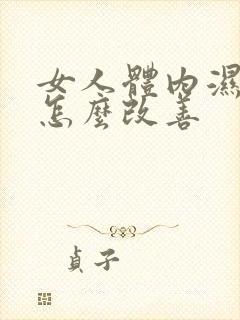 女人體內濕
怎麼改善
貞子